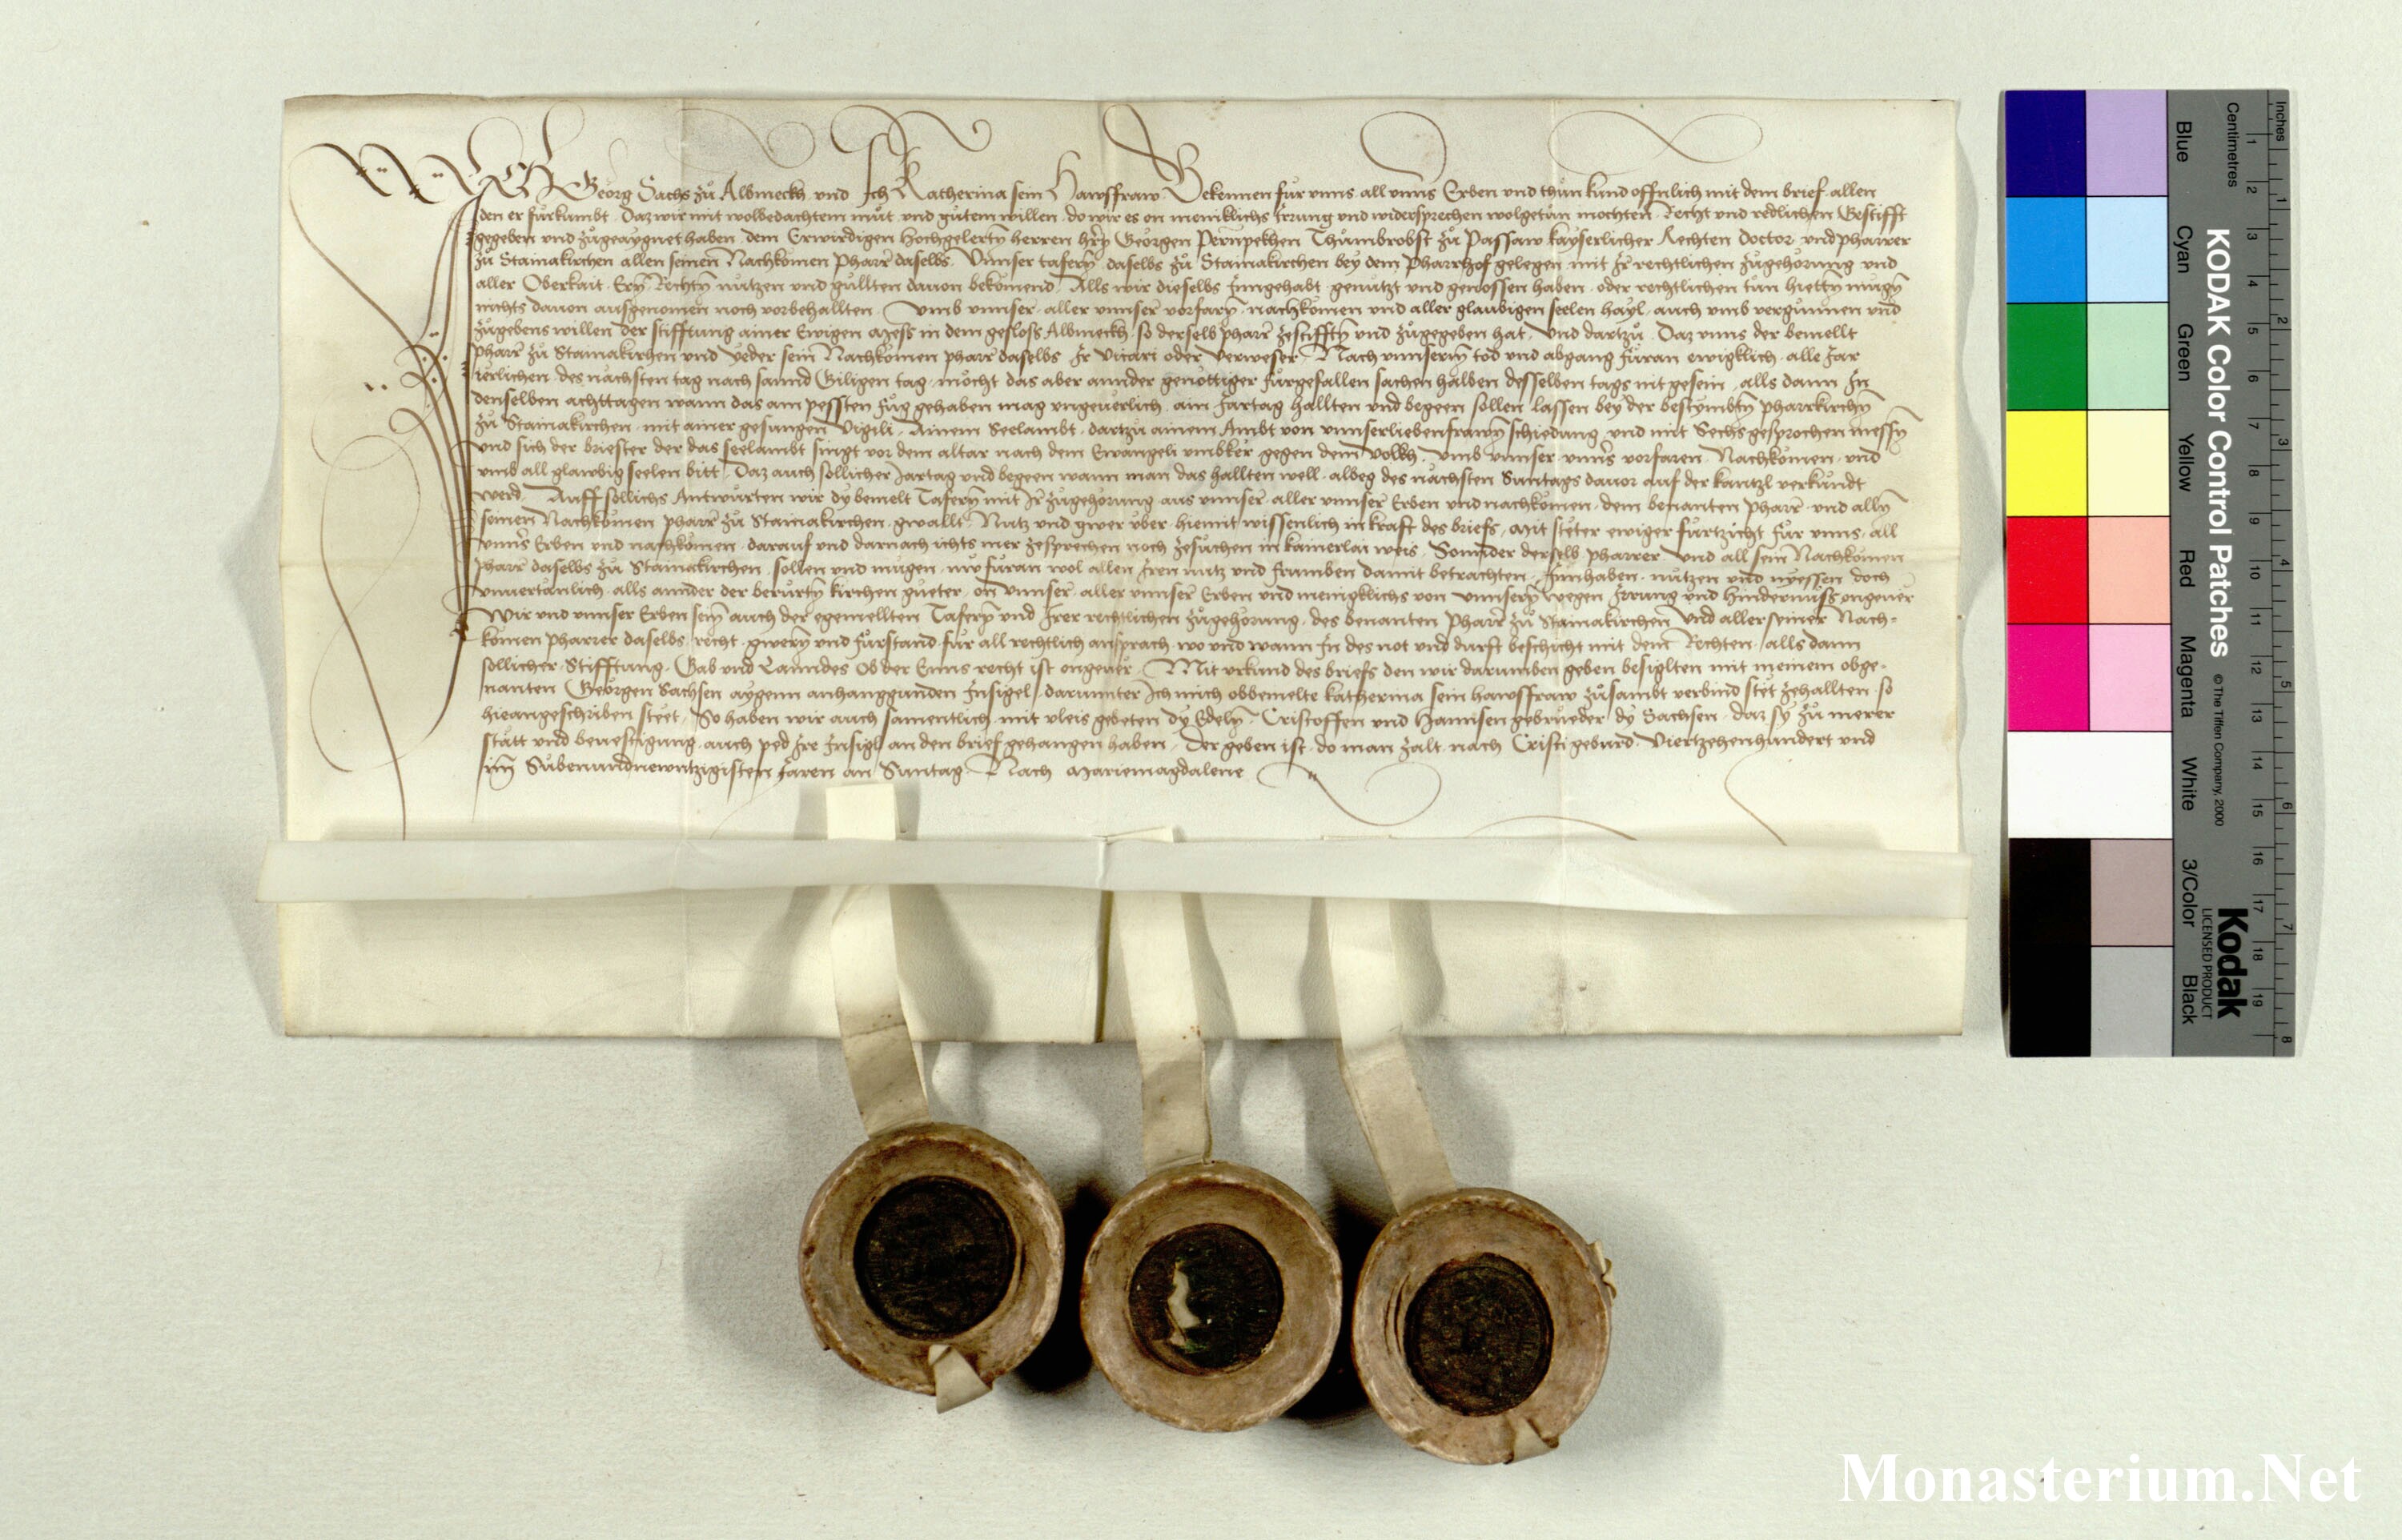 Ich Georg Sachs zů Albmeckh und Ich Katherina sein Hawsffraw Bekennen für vnns all vnns Erben vnd thůn kund offnlich mit dem brief allen
den er fürkumbt Daz wir mit wolbedachtem můt vnd gůtem willen do wir es on meniklichs Irrung vnd widersprechen wolgetůn mochten Recht vnd redlichen Gestifft
gegeben vnd zůgeaygnet haben dem Erwirdigen hochgelertn̄ herren hr̄n Georgen Pernpekhen Thůmbrobst zů Passaw kayserlicher Rechten doctor vnd pharrer
zů Stainakirchen allen seinen Nachkomen Pharr̄ daselbs Vnnser tafern̄ daselbs zů Stainakirchen bey dem Pharrhof gelegen mit Ir̄ rechtlichen zůgehörung vnd
aller Oberkait Ern̄ Rechtn̄ nützen vnd güllten dauon bekomend Alls wir dieselbs Inngehabt genützt vnd genossen haben oder rechtlichen tůn hiettn̄ mügn̄
nichts dauon ausgenomen noch vorbehallten Vmb vnnser aller vnnser vorfarn̄ nachkomen vnd aller glaubigen seelen hayl auch vmb vergünnen vnd
zůgebens willen der stifftung ainer Ewigen mess in dem gesloss Albmeckh so derselb pharr̄ zestifftn̄ vnd zůgegeben hat Vnd dartzů Daz vnns der bemellt
pharr̄ zů Stainakirchen vnd yeder sein Nachkomen pharr̄ daselbs Ir Vicari oder Verweser Nach vnnserm̄ tod vnd abgang füran ewigklich alle Jar
ierlichen des nächsten tag nach sannd Giligen tag möcht das aber annder genöttiger fürgefallen sachen halben desselben tags nit gesein alls dann In
denselben achttagen wann das am pessten fůg gehaben mag vngeuerlich ain Jartag hallten vnd begeen sollen lassen bey der bestymbtn̄ pharrkirchn̄
zů Stainakirchen mit ainer gesungen Vigili Ainem Seelambt dartzů ainem Ambt von vnnserliebenfrawn̄ schiedung vnd mit Sechs gesprochen messn̄
vnd sich der briester der das seelambt singt vor dem altar nach dem Ewangeli vmbker gegen dem volkh Vmb vnnser vnns vorfaren Nachkomen vnd
vmb all glawbig seelen bitt Daz auch sollicher Jartag vnd begeen wann man das hallten well albeg des nächsten Suntags dauor auf der kantzl verkündt
werd Auff sollichs Antwürten wir dy bemelt Tafern̄ mit Ir̄ zůgehörung aus vnnser aller vnnser Erben vnd nachkomen dem benanten pharr̄ vnd alln̄
seinen Nachkomen pharr̄ zů Stainakirchen gwallt Nutz vnd gwer vber hiemit wissenlich in kraft des briefs Mit stäter ewiger fürtzicht für vnns all
vnns Erben vnd nachkomen darauf vnd darnach ichts mer zesprechen noch zesůchen in kainerlai weis Sonnder derselb pharrer vnd all sein Nachkomen
pharr̄ daselbs zů Stainakirchen sollen vnd mügen nw füran wol allen Iren nutz vnd frumben damit betrachten Innhaben nützen vnd nyessen doch
vnuertänlich alls annder der berürtn̄ kirchen güeter on vnnser aller vnnser Erben vnd menigklichs von vnnsern̄ wegen Irrung vnd hindernüss ongeuer
Wir vnd vnnser Erben sein auch der egemellten Tafern̄ vnd Irer rechtlichen zůgehörung des benanten Pharr̄ zů Stainakirchen Vnd aller seiner Nach-
komen pharrer daselbs recht gwern̄ vnd fürstand für all rechtlich ansprach wo vnd wann In des not vnd durft beschicht mit dem Rechten alls dann
sollicher Stifftung Gab vnd Lanndes Ob der Enns recht ist ongeuer Mit vrkund des briefs den wir darumben geben besiglten mit meinem obge-
nanten Georgen Sachsen aygenn anhanggunden Innsigel darunnter Ich mich obbemelte katherina sein hawsffraw zůsambt verbind stet zehallten so
hieangeschriben steet So haben wir auch samentlich mit vleis gebeten dy Edeln̄ Cristoffen vnd Hannsen gebrüeder dy Sachsen daz sy zů merer
stätt vnd beuestigung auch yed Ire Innsigl an den brief gehangen haben Der geben ist do man zalt nach Cristi geburd Viertzehenhundert vnd
im̄ Sübenundnewntzigisten Jaren an Suntag Nach Mariemagdalene
KODAK Color Control Patches
© The Tiffen Company, 2000
Kodak
LICENSED PRODUCT
Inches
Centimetres
Blue
Cyan
Green
Yellow
Red
Magenta
White
3/Color
Black
1 2 3 4 5 6 7 8 9 10 11 12 13 14 15 16 17 18 19
1 2 3 4 5 6 7 8
Monasterium.Net